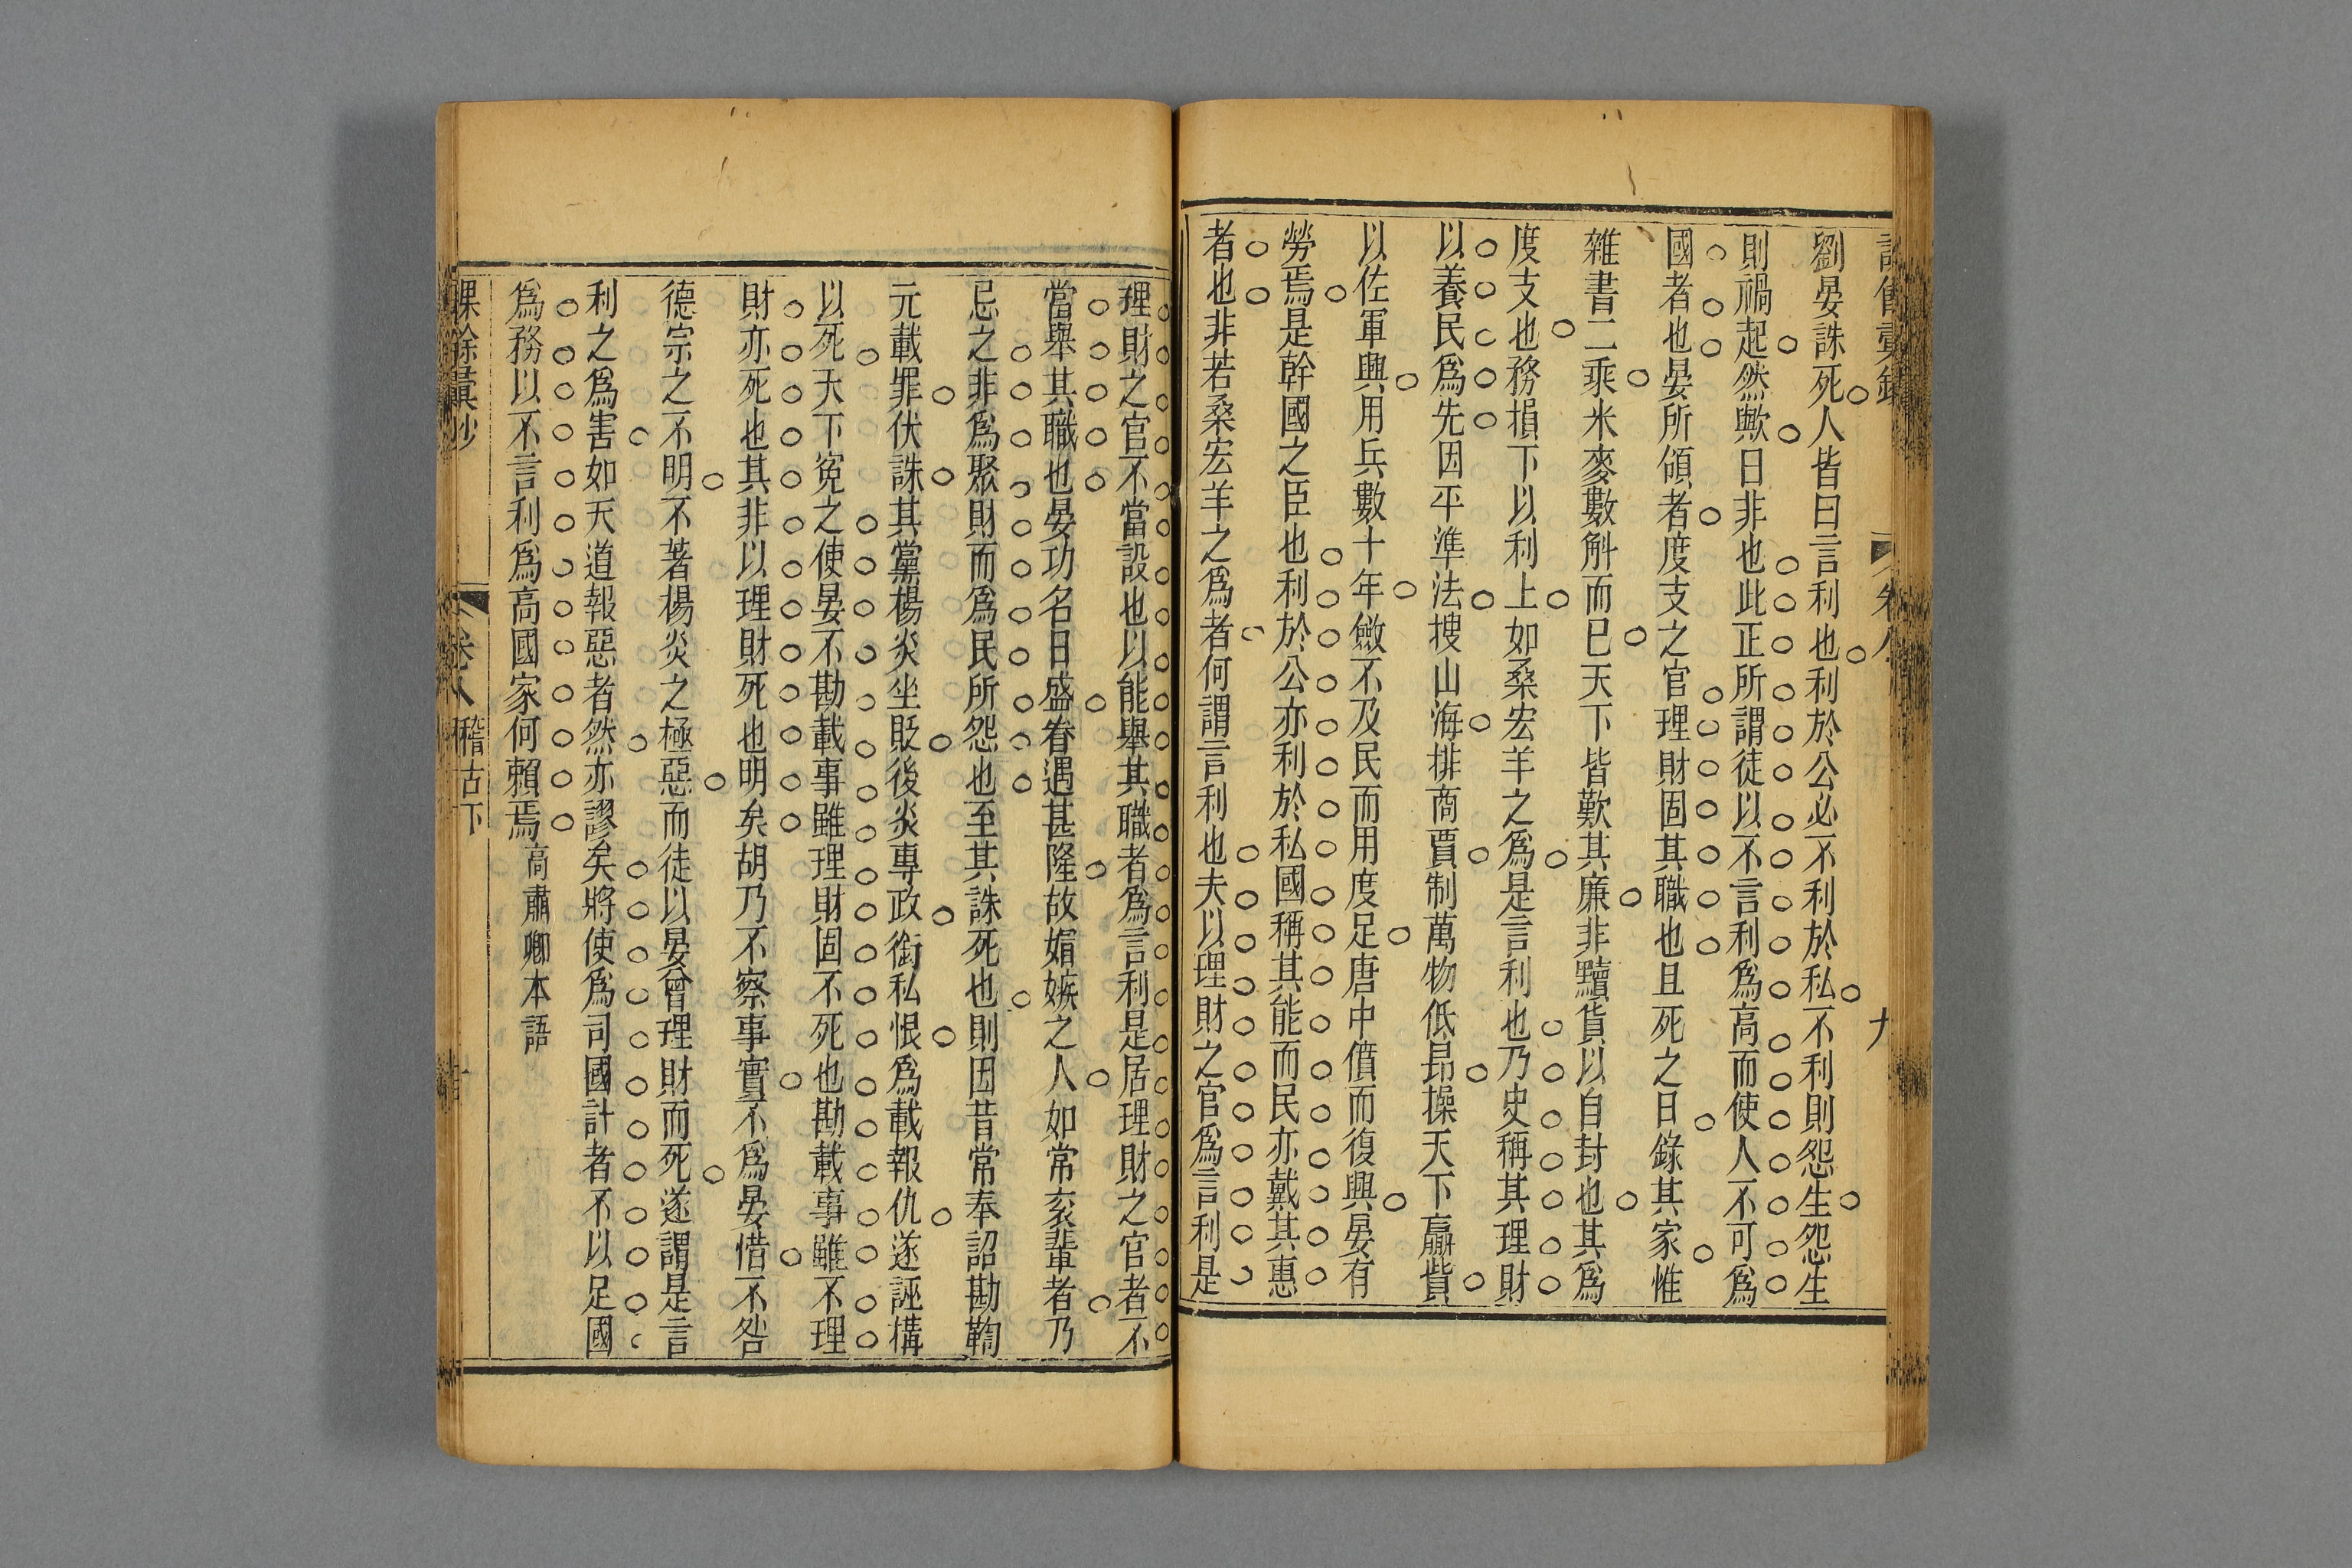 劉晏誅死人皆曰言利也利於公必不利於私不利則怨生怨生
則禍起然歟曰非也此正所謂徒以不言利爲高而使人不可爲
國者也晏所領者度支之官理財固其職也且死之日錄其家惟
雜書二乘米麥數斛而已天下皆歎其廉非黷貨以自封也其爲
度支也務損下以利上如桑宏羊之爲是言利也乃史稱其理財
以養民爲先因平準法搜山海排商賈制萬物低昂操天下贏貲
以佐軍興用兵數十年斂不及民而用度足唐中僨而復興晏有
勞焉是幹國之臣也利於公亦利於私國稱其能而民亦戴其惠
者也非若桑宏羊之爲者何謂言利也夫以理財之官爲言利是
理財之官不當設也以能舉其職者爲言利是居理財之官者不
當舉其職也晏功名日盛眷遇甚隆故媢嫉之人如常袞輩者乃
忌之非爲聚財而爲民所怨也至其誅死也則因昔常奉詔勘鞫
元載罪伏誅其黨楊炎坐貶後炎專政銜私恨爲載報仇遂誣構
以死天下寃之使晏不勘載事雖理財固不死也勘載事雖不理
財亦死也其非以理財死也明矣胡乃不察事實不爲晏惜不咎
德宗之不明不著楊炎之極惡而徒以晏曾理財而死遂謂是言
利之爲害如天道報惡者然亦謬矣將使爲司國計者不以足國
爲務以不言利爲高國家何賴焉高肅卿本語
課餘彙鈔 卷八 稽古下